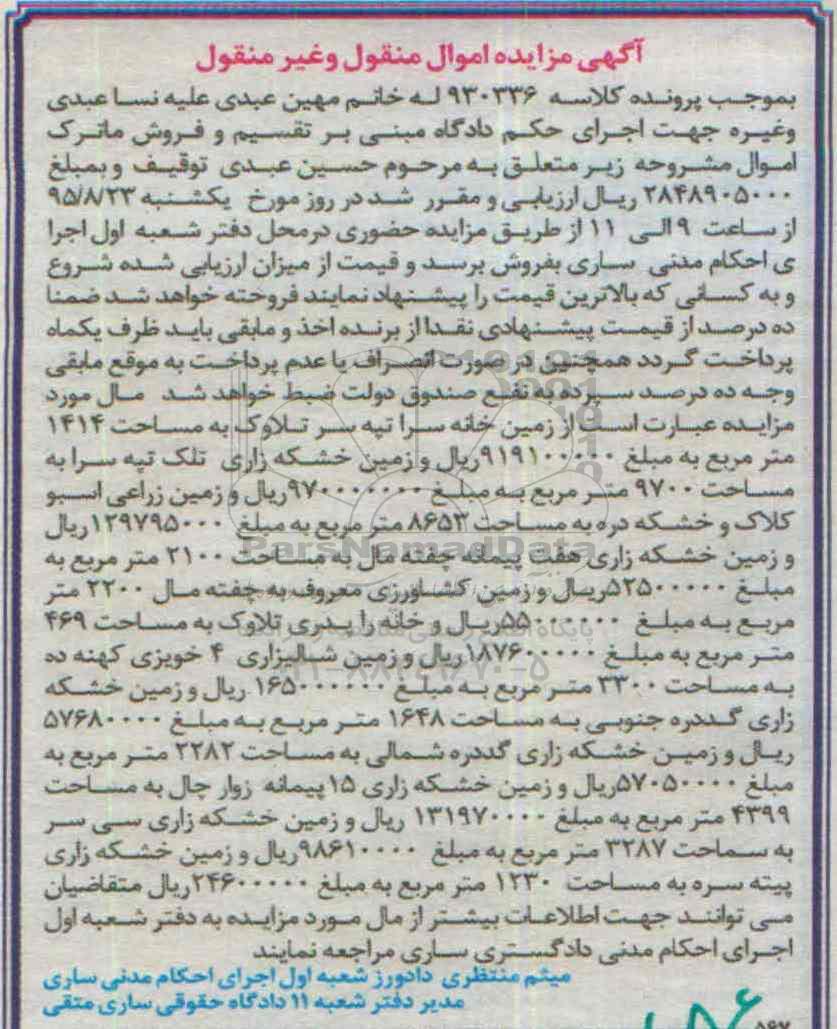 آگهی مزایده اموال منقول وغیر منقول
بموجب پرونده کلاسه ۹۳۰۳۳۶ له خانم مهین عبدی علیه نسا عبدی
وغیره جهت اجرای حکم دادگاه مبنی بر تقسیم و فروش ماترک
اموال مشروحه زیر متعلق به مرحوم حسین عبدی توقیف وبمبلغ
۲۸۴۸۹۰۵۰۰۰ ریال ارزیابی و مقرر شد در روز مورخ یکشنبه ۹۵/۸/۲۳
از ساعت ۹ الی ۱۱ از طریق مزایده حضوری درمحل دفتر شعبه اول اجرا
ی احکام مدنی ساری بفروش برسد و قیمت از میزان ارزیابی شده شروع
و به کسانی که بالاترین قیمت را پیشنهاد نمایند فروخته خواهد شد ضمنا
ده درصد از قیمت پیشنهادی نقدا از برنده اخذ و مابقی باید ظرف یکماه
پرداخت گردد همچنین در صورت انصراف یا عدم پرداخت به موقع مابقی
وجه ده درصد سپرده به نفع صندوق دولت ضبط خواهد شد مال مورد
مزایده عبارت است از زمین خانه سرا تپه سر تلاوک به مساحت ۱۴۱۴
متر مربع به مبلغ ۹۱۹۱۰۰۰۰۰ریال و زمین خشکه زاری تلک تپه سرا به
مساحت ۹۷۰۰ متر مربع به مبلغ ۹۷۰۰۰۰۰۰۰ریال و زمین زراعی اسبو
کلاک و خشکه دره به مساحت ۸۶۵۳ متر مربع به مبلغ ۱۲۹۷۹۵۰۰۰ریال
و زمین خشکه زاری هفت پیمانه چفته مال به مساحت ۲۱۰۰ متر مربع به
مبلغ ۵۲۵۰۰۰۰۰ریال و زمین کشاورزی معروف به چفته مال ۲۲۰۰ متر
مربع به مبلغ ۵۵۰۰۰۰۰۰ریال و خانه را پدری تلاوک به مساحت ۴۶۹
متر مربع به مبلغ ۱۸۷۶۰۰۰۰۰ ریال و زمین شالیزاری ۴ خویزی کهنه ده
به مساحت ۳۳۰۰ متر مربع به مبلغ ۱۶۵۰۰۰۰۰۰ ریال و زمین خشکه
زاری گددره جنوبی به مساحت ۱۶۴۸ متر مربع به مبلغ ۵۷۶۸۰۰۰۰
ریال و زمین خشکه زاری گددره شمالی به مساحت ۲۲۸۲ متر مربع به
مبلغ ۵۷۰۵۰۰۰۰ریال و زمین خشکه زاری ۱۵ پیمانه زوار چال به مساحت
۴۳۹۹ متر مربع به مبلغ ۱۳۱۹۷۰۰۰۰ ریال و زمین خشکه زاری سی سر
به سماحت ۳۲۸۷ متر مربع به مبلغ ۹۸۶۱۰۰۰۰ریال و زمین خشکه زاری
پیته سره به مساحت ۱۲۳۰ متر مربع به مبلغ ۲۴۶۰۰۰۰۰ریال متقاضیان
می توانند جهت اطلاعات بیشتر از مال مورد مزایده به دفتر شعبه اول
اجرای احکام مدنی دادگستری ساری مراجعه نمایند
میثم منتظری دادورز شعبه اول اجرای احکام مدنی ساری
مدیر دفتر شعبه ۱۱ دادگاه حقوقی ساری متقی
ParsNamadData